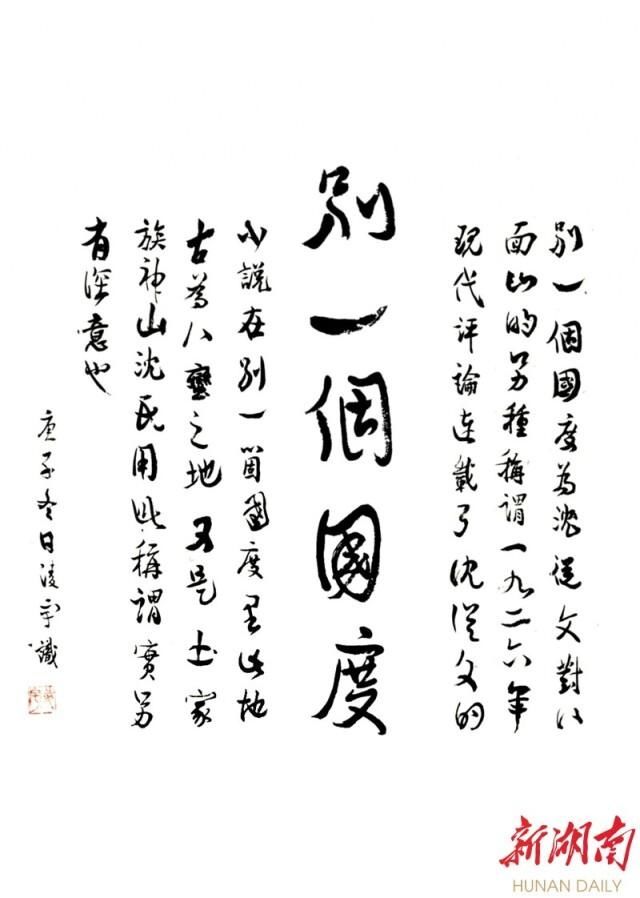 别一個國度為沈從文對八
面山的另種稱謂一九二六年
現代評論連載了沈從文的
别一個國度
小說在别一箇國度里此地
古為八蠻之地又是土家
族神山沈氏用此稱謂實另
有深意也
庚子冬日凌宇識
新湖南
HUNAN DAILY